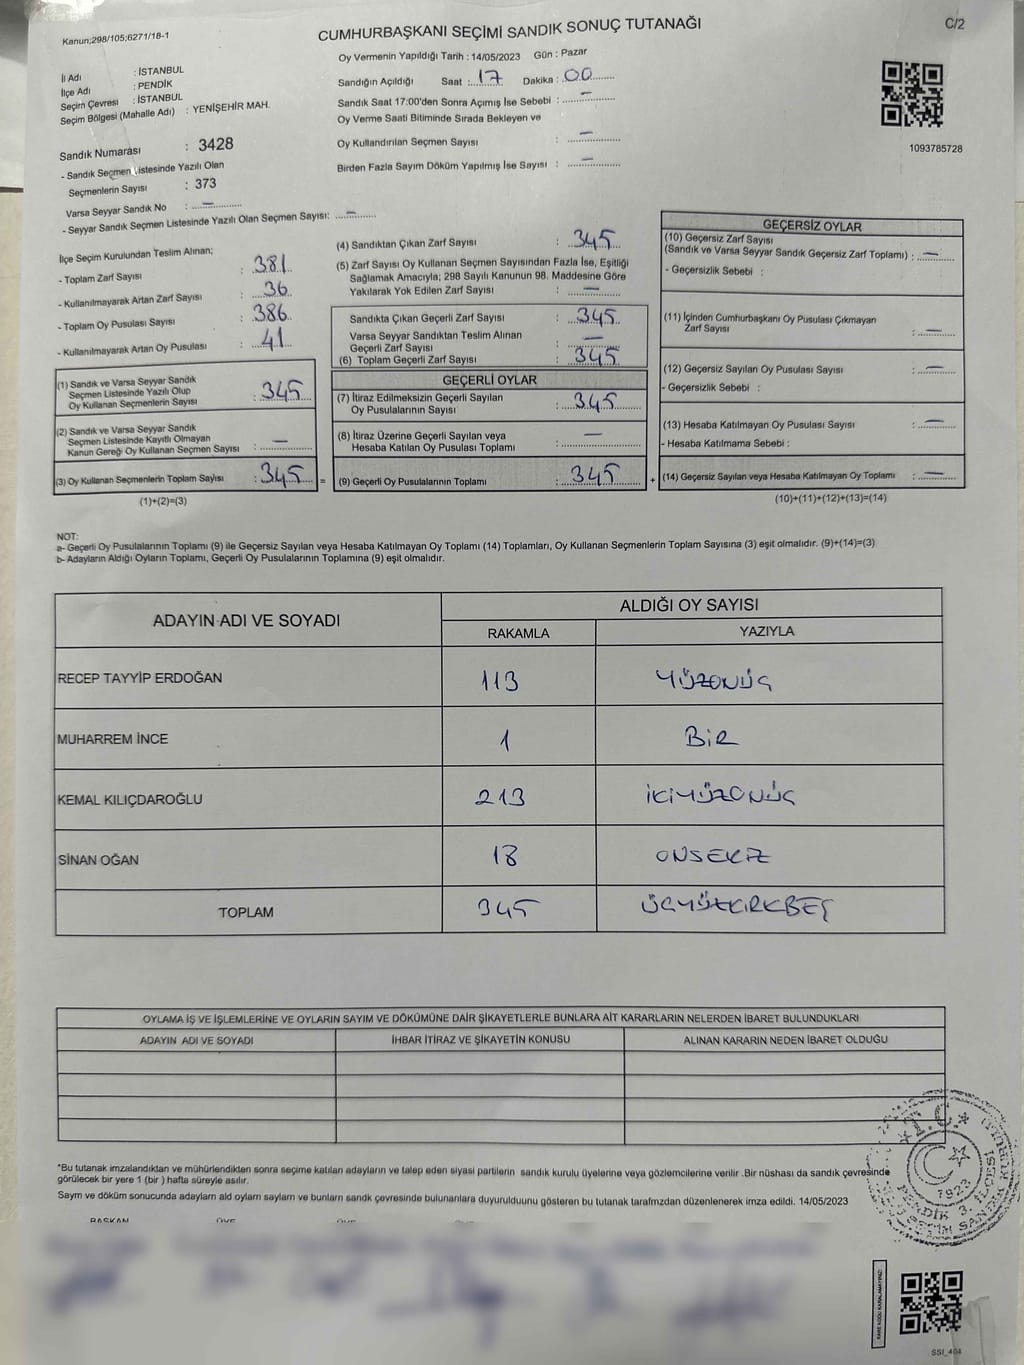 Kanun;298/105;6271/18-1
CUMHURBAŞKANI SEÇİMİ SANDIK SONUÇ TUTANAĞI
C/2
İl Adı : İSTANBUL
İlçe Adı : PENDİK
Seçim Çevresi : İSTANBUL
Seçim Bölgesi (Mahalle Adı) : YENİŞEHİR MAH.
Sandık Numarası : 3428
- Sandık Seçmen Listesinde Yazılı Olan
Seçmenlerin Sayısı : 373
Varsa Seyyar Sandık No : —
- Seyyar Sandık Seçmen Listesinde Yazılı Olan Seçmen Sayısı: —
Oy Vermenin Yapıldığı Tarih : 14/05/2023 Gün : Pazar
Sandığın Açıldığı Saat : 17 Dakika : 00
Sandık Saat 17:00'den Sonra Açımış İse Sebebi : —
Oy Verme Saati Bitiminde Sırada Bekleyen ve
Oy Kullandırılan Seçmen Sayısı : —
Birden Fazla Sayım Döküm Yapılmış İse Sayısı : —
1093785728
İlçe Seçim Kurulundan Teslim Alınan;
- Toplam Zarf Sayısı : 381
- Kullanılmayarak Artan Zarf Sayısı : 36
- Toplam Oy Pusulası Sayısı : 386
- Kullanılmayarak Artan Oy Pusulası : 41
(1) Sandık ve Varsa Seyyar Sandık
Seçmen Listesinde Yazılı Olup
Oy Kullanan Seçmenlerin Sayısı : 345
(2) Sandık ve Varsa Seyyar Sandık
Seçmen Listesinde Kayıtlı Olmayan
Kanun Gereği Oy Kullanan Seçmen Sayısı : —
(3) Oy Kullanan Seçmenlerin Toplam Sayısı : 345 =
(1)+(2)=(3)
(4) Sandıktan Çıkan Zarf Sayısı : 345
(5) Zarf Sayısı Oy Kullanan Seçmen Sayısından Fazla İse, Eşitliği
Sağlamak Amacıyla; 298 Sayılı Kanunun 98. Maddesine Göre
Yakılarak Yok Edilen Zarf Sayısı : —
Sandıkta Çıkan Geçerli Zarf Sayısı : 345
Varsa Seyyar Sandıktan Teslim Alınan
Geçerli Zarf Sayısı : —
(6) Toplam Geçerli Zarf Sayısı : 345
GEÇERLİ OYLAR
(7) İtiraz Edilmeksizin Geçerli Sayılan
Oy Pusulalarının Sayısı : 345
(8) İtiraz Üzerine Geçerli Sayılan veya
Hesaba Katılan Oy Pusulası Toplamı : —
(9) Geçerli Oy Pusulalarının Toplamı : 345 +
GEÇERSİZ OYLAR
(10) Geçersiz Zarf Sayısı
(Sandık ve Varsa Seyyar Sandık Geçersiz Zarf Toplamı) : —
- Geçersizlik Sebebi :
(11) İçinden Cumhurbaşkanı Oy Pusulası Çıkmayan
Zarf Sayısı : —
(12) Geçersiz Sayılan Oy Pusulası Sayısı : —
- Geçersizlik Sebebi :
(13) Hesaba Katılmayan Oy Pusulası Sayısı : —
- Hesaba Katılmama Sebebi :
(14) Geçersiz Sayılan veya Hesaba Katılmayan Oy Toplamı : —
(10)+(11)+(12)+(13)=(14)
NOT:
a- Geçerli Oy Pusulalarının Toplamı (9) ile Geçersiz Sayılan veya Hesaba Katılmayan Oy Toplamı (14) Toplamları, Oy Kullanan Seçmenlerin Toplam Sayısına (3) eşit olmalıdır. (9)+(14)=(3)
b- Adayların Aldığı Oyların Toplamı, Geçerli Oy Pusulalarının Toplamına (9) eşit olmalıdır.
ADAYIN ADI VE SOYADI ALDIĞI OY SAYISI
RAKAMLA YAZIYLA
RECEP TAYYİP ERDOĞAN 113 YÜZONÜÇ
MUHARREM İNCE 1 BİR
KEMAL KILIÇDAROĞLU 213 İKİYÜZONÜÇ
SİNAN OĞAN 18 ONSEKİZ
TOPLAM 345 ÜÇYÜZKIRKBEŞ
OYLAMA İŞ VE İŞLEMLERİNE VE OYLARIN SAYIM VE DÖKÜMÜNE DAİR ŞİKAYETLERLE BUNLARA AİT KARARLARIN NELERDEN İBARET BULUNDUKLARI
ADAYIN ADI VE SOYADI İHBAR İTİRAZ VE ŞİKAYETİN KONUSU ALINAN KARARIN NEDEN İBARET OLDUĞU
*Bu tutanak imzalandıktan ve mühürlendikten sonra seçime katılan adayların ve talep eden siyasi partilerin sandık kurulu üyelerine veya gözlemcilerine verilir .Bir nüshası da sandık çevresinde
görülecek bir yere 1 (bir ) hafta süreyle asılır.
Sayım ve döküm sonucunda adayların ald oyların sayların bunların sandk çevresinde bulunanlara duyurulduunu gösteren bu tutanak tarafmzdan düzenlenerek imza edildi. 14/05/2023
BAŞKAN ÜYE ÜYE
T.C.
1923
PENDİK 3. İLÇESİ
SSI_404